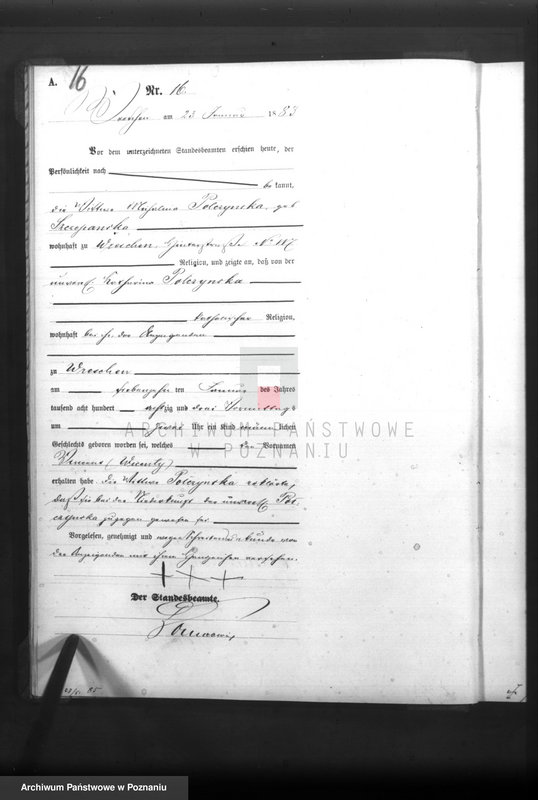 A.
16
Nr. 16
Wreschen am 23 Januar 1883
Vor dem unterzeichneten Standesbeamten erschien heute, der
Persönlichkeit nach
be kannt,
die Wittwe Polczynska, geb
Szczepanska
wohnhaft zu Wreschen, No 187
Religion, und zeigte an, daß von der
unverehl. Katharina Polczynska
katholischer Religion,
wohnhaft bei der Anzeigenden
zu Wreschen
am siebenzehn ten Januar des Jahres
tausend acht hundert achtzig und drei Vormittags
um Uhr ein Kind männlichen
Geschlechts geboren worden sei, welches den Vornamen
Vincent (Wicenty)
erhalten habe. die Wittwe Polczynska erklärte,
daß sie bei der Niederkunft der unverehl. Pol-
czynska zugegen gewesen sei
Vorgelesen, genehmigt und wegen Schreibensunkunde von
der Anzeigenden mit ihrem Handzeichen versehen.
+ + +
Der Standesbeamte.
ARCHIWUM PAŃSTWOWE
W POZNANIU
85
Archiwum Państwowe w Poznaniu